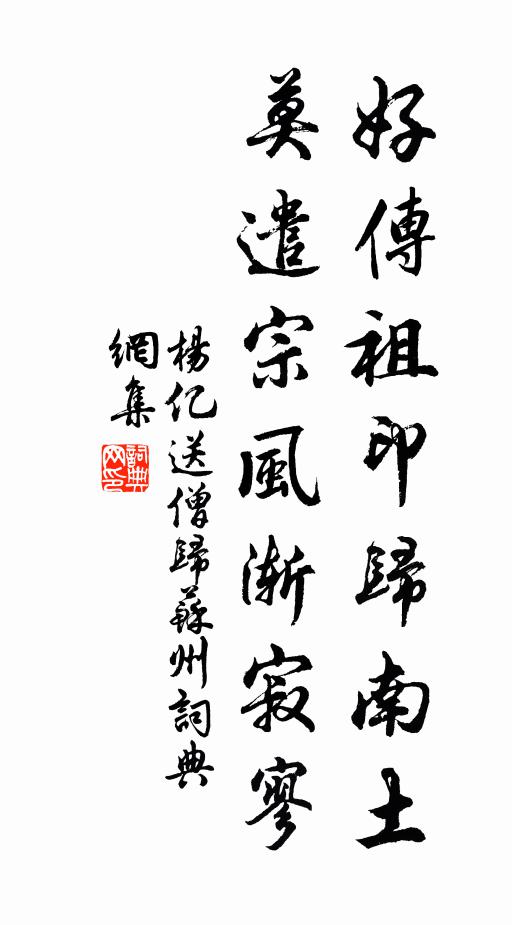 好傳祖印歸南土
莫遣宗風漸寂寥
楊亿送僧歸蘇州詞典
網集
詞典
网印